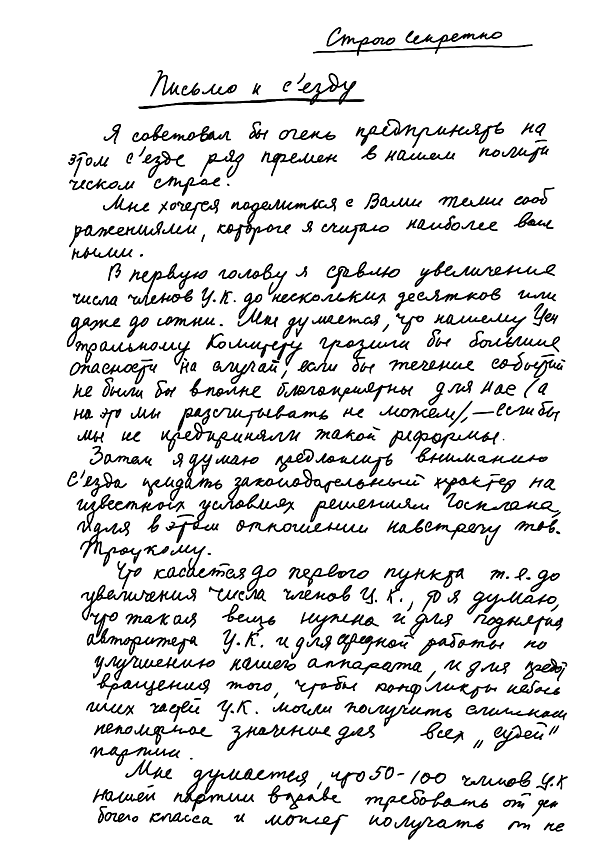 Строго секретно
Письмо к с'езду
Я советовал бы очень предпринять на
этом с'езде ряд перемен в нашем полити
ческом строе.
Мне хочется поделиться с Вами теми сооб
ражениями, которые я считаю наиболее важ
ными.
В первую голову я ставлю увеличение
числа членов Ц.К. до нескольких десятков или
даже до сотни. Мне думается, что нашему Цен
тральному Комитету грозили бы большие
опасности на случай, если бы течение событий
не были бы вполне благоприятны для нас (а
на это мы рассчитывать не можем), — если бы
мы не предприняли такой реформы.
Затем я думаю предложить вниманию
с'езда придать законодательный характер на
известных условиях решениям Госплана,
идя в этом отношении навстречу тов.
Троцкому.
Что касается до первого пункта т.е. до
увеличения числа членов Ц.К., то я думаю,
что такая вещь нужна и для поднятия
авторитета Ц.К. и для работы по
улучшению нашего аппарата, и для предот
вращения того, чтобы конфликты неболь
ших частей Ц.К. могли получить слишком
непомерное значение для всех „судеб"
партии.
Мне думается, что 50-100 членов Ц.К
нашей партии вправе требовать от ра
бочего класса и может получать от не